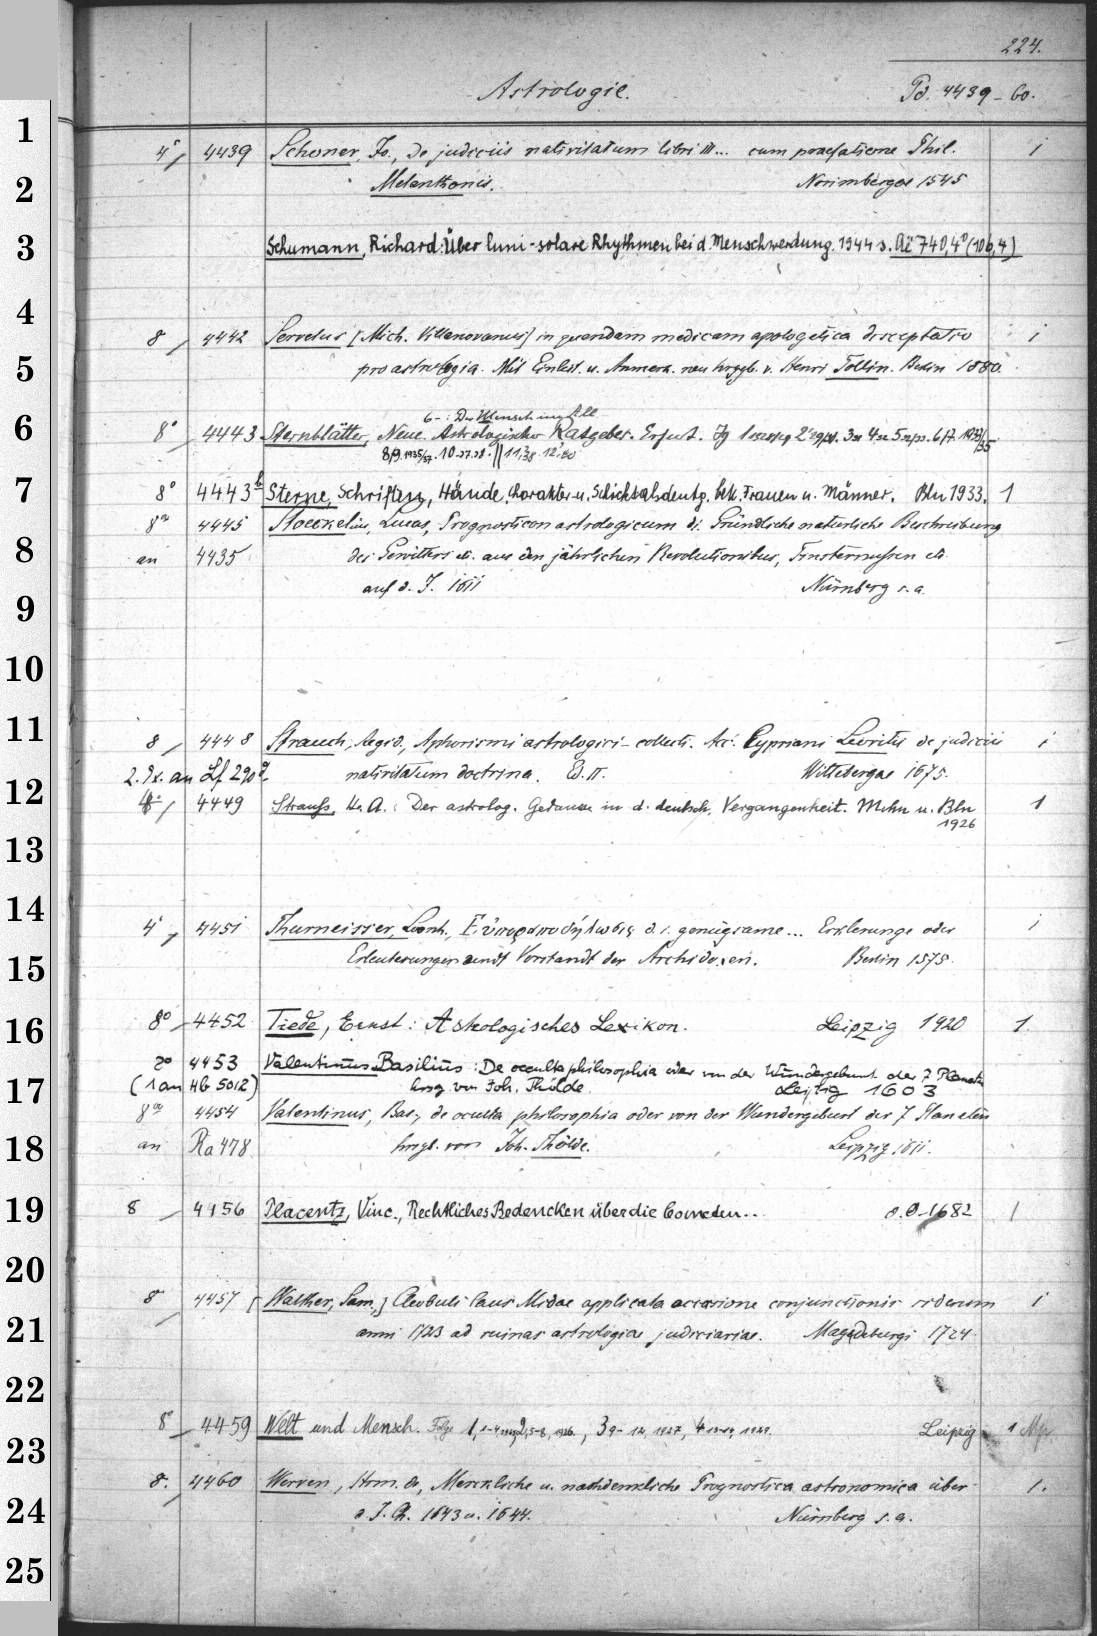 224.
Astrologie. Pd. 4439-60.
1
4°, 4439 Schoner, Jo., De judiciis nativitatum libri III... cum praefatione Phil. 1
2
Melanthonis. Norimbergae 1545
3
Schumann, Richard: Über luni-solare Rhythmen bei d. Menschwerdung. 1944 s. Aë 740, 4° (106,4)
4
8 4442 Servetus [Mich. Villanovanus] in quendam medicum apologetica disceptatio 1
5
pro astrologia. Mit Einleit. u. Anmerk. neu hrsgb. v. Henri Tollin. Berlin 1880.
6-: Der Mensch im All
6
8° 4443 Sternblätter, Neue. Astrologischer Ratgeber. Erfurt. Jg
7
8° 4443b Sterne, Schriften, Hände. Charakter- u. Schicksalsdeutg. bek. Frauen u. Männer. Bln 1933. 1
4445 Stoeckelius, Lucas, Prognosticon astrologicum d.i. Gründliche natürliche Beschreibung
8
an 4435 des Gewitters etc. aus den jährlichen Revolutionibus, Finsternussen etc.
auf d. J. 1611 Nürnberg s. a.
9
10
11
8 4448 Strauch, Aegid., Aphorismi astrologici collecti. Acc. Cypriani Leovitii de judiciis 1
2. Ex. an Lf 290 nativitatum doctrina. Ed. II. Wittebergae 1675.
12
4449 Strauss, H. A.: Der astrolog. Gedanke in d. deutsch. Vergangenheit. Mchn u. Bln 1
1926
13
14
4° 4451 Thurneisser, Leonh., d. i. genugsame... Erklerunge oder 1
15
Erleuterungen undt Vorstandt der Archidoxen. Berlin 1575.
16
8° 4452 Tiede, Ernst: Astrologisches Lexikon. Leipzig 1920 1.
4453 Valentinus Basilius: De occulta philosophia oder von der Wundergeburt der 7 Planeten
17
(1 an Hb 5012) hrsg. von Joh. Thölde Leipzig 1603
4454 Valentinus, Bas., de occulta philosophia oder von der Wundergeburt der 7 Planeten
18
an Ra 478 hrsgb. von Joh. Thölde. Leipzig 1611.
19
8 4456 Placentz, Vinc., Rechtliches Bedencken über die Cometen... o. O. 1682 1
20
8° 4457 [Walther, Sam.,] Cleobuli laus Midae applicata occasione conjunctionis siderum 1
21
anni 1723 ad ruinas astrologiae judiciariae. Magdeburgi 1724
22
8° 4459 Welt und Mensch. Folge 1, 1-4 2, 5-8, 1926., 3 9-12, 1927, 4 Leipzig 1
23
8. 4460 Werven, Hrm. de, Merckliche u. nachdenkliche Prognostica astronomica über 1.
24
d. J. Ch. 1643 u. 1644. Nürnberg s. a.
25